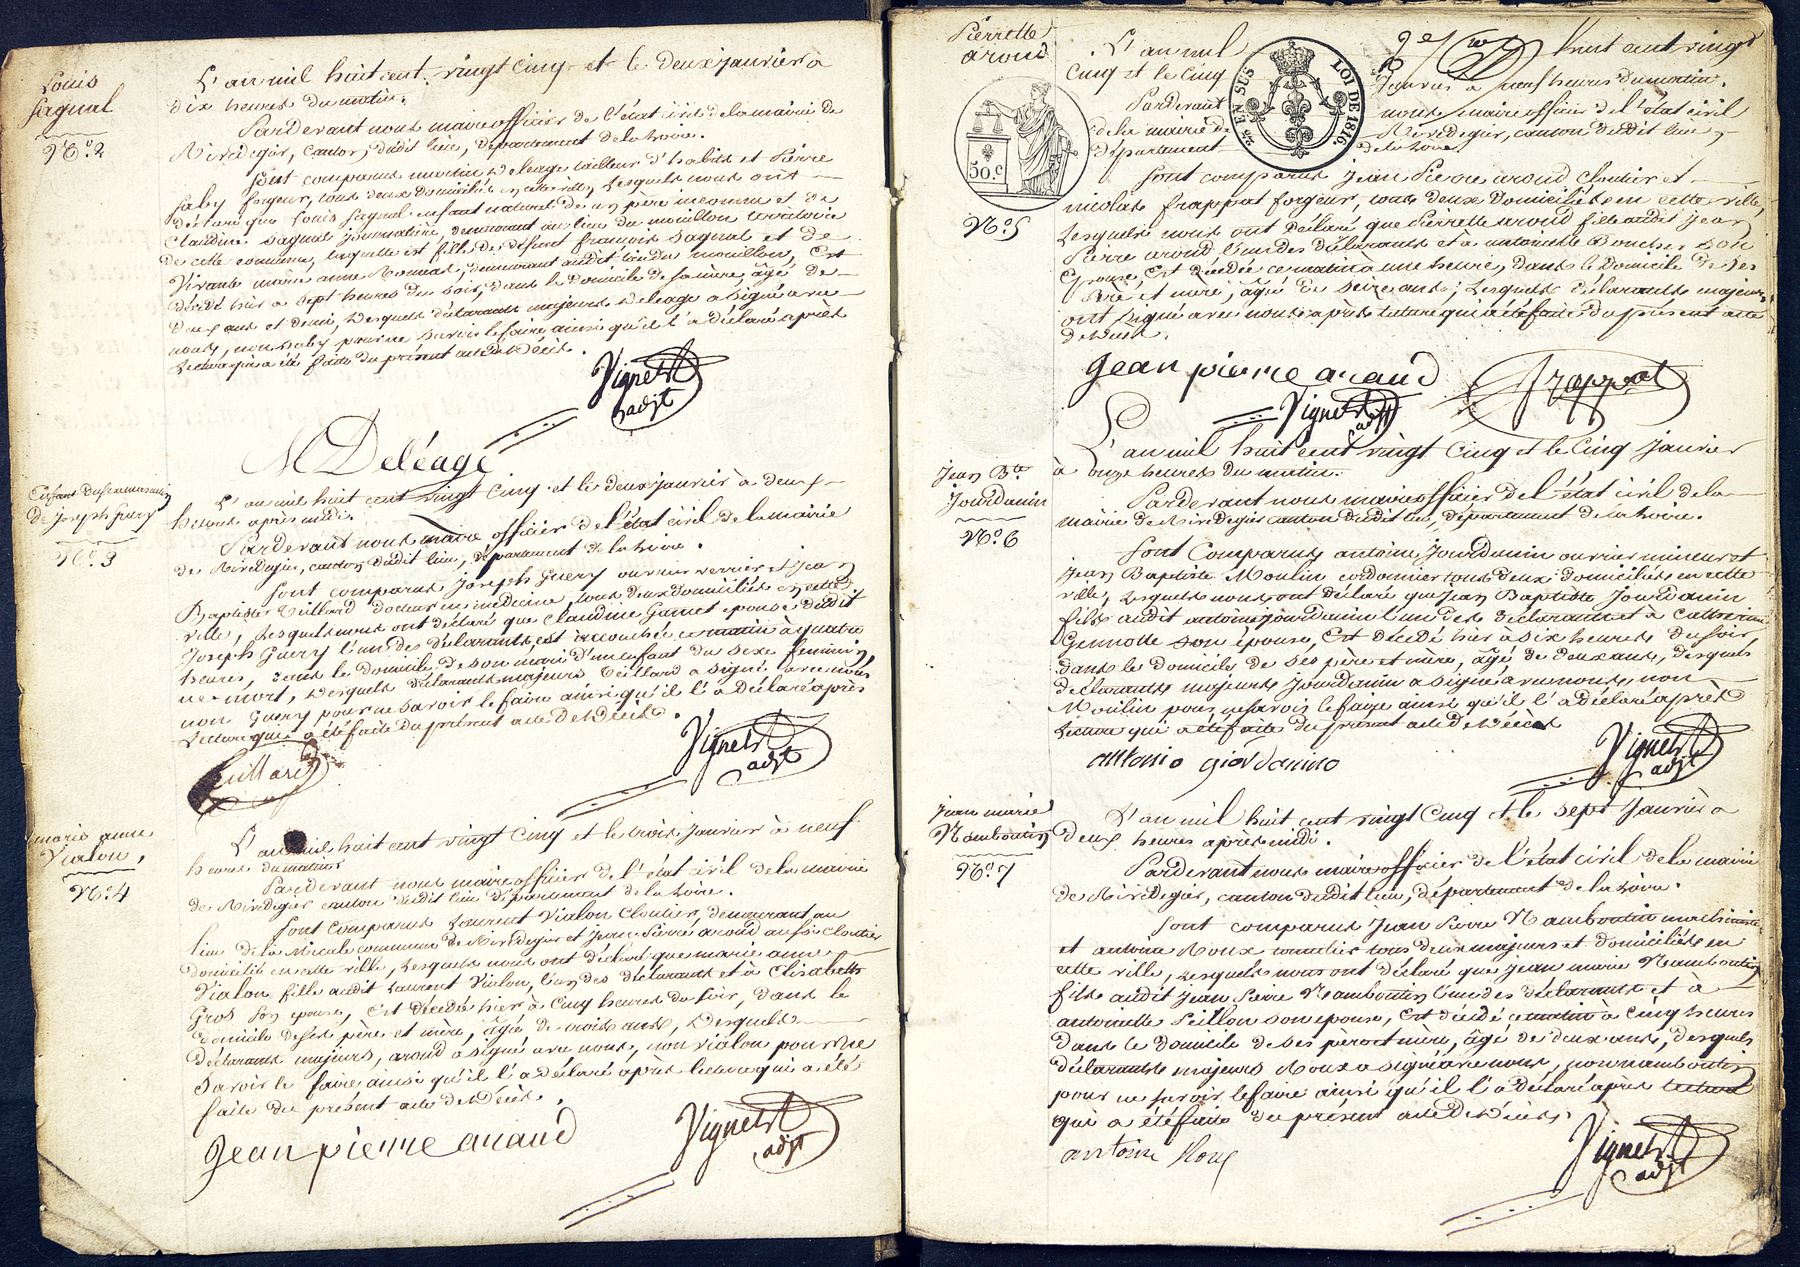 Louis
Sagnal
N.º 2
L'an mil huit cent vingt cinq et le deux janvier à
dix heures du matin.
Pardevant nous maire officier de l'état civil de la mairie de
Rivedegier, canton dudit lieu, département de la Loire.
Sont comparus deleage tailleur d'habits et Pierre
Saby forgeur, tous deux domiciliés en cette ville, lesquels nous ont
déclaré que Louis Sagnal enfant naturel de un père inconnu et de
Claudine Sagnal journalière, demeurant au lieu du mouillon territoire
de cette commune, laquelle est fille de défunt françois Sagnal et de
vivante marie anne demeurant audit lieu du mouillon, Est
décédé hier à sept heures du soir, dans le domicile de sa mère, âgé de
deux ans et demi, desquels déclarants majeurs deleage a signé avec
nous, non Saby pour ne savoir le faire ainsi qu'il l'a déclaré après
lecture qui a été faite du présent acte de décès.
Vignet
adjt
M Deléage
Enfant
de Joseph Guery
N.º 3
L'an mil huit cent vingt cinq et le deux janvier à deux
heures après midi.
Pardevant nous maire officier de l'état civil de la mairie
de Rivedegier, canton dudit lieu, département de la Loire.
Sont comparus Joseph Guery ouvrier verrier et jean
Baptiste Teillard docteur en médecine, tous deux domiciliés en cette
ville, lesquels nous ont déclaré que Claudine épouse dudit
Joseph Guery l'un des déclarants, est accouchée ce matin à quatre
heures, dans le domicile de son mari d'un enfant du sexe féminin,
né mort, desquels déclarants majeurs Teillard a signé avec nous
non Guery pour ne savoir le faire ainsi qu'il l'a déclaré après
lecture qui a été faite du présent acte de décès.
Vignet
adjt
Teillard
marie anne
Vialon,
N.º 4
L'an mil huit cent vingt cinq et le trois janvier à neuf
heures du matin
Pardevant nous maire officier de l'état civil de la mairie
de Rivedegier canton dudit lieu département de la Loire.
Sont comparus Laurent Vialon Cloutier, demeurant au
lieu de la commune de Rivedegier et jean Pierre aroud aussi cloutier
domicilié en cette ville, lesquels nous ont déclaré que marie anne
Vialon fille audit Laurent Vialon, l'un des déclarants et à Elisabeth
Gros son épouse, Est décédée hier à cinq heures du soir, dans le
domicile de ses père et mère, âgée de trois ans, desquels
déclarants majeurs, aroud a signé avec nous, non vialon pour ne
savoir le faire ainsi qu'il l'a déclaré après lecture qui a été
faite du présent acte de décès.
Jean pierre araud
Vignet
adjt
Pierrette
aroud
50.c
N.º 5
25 EN SUS
LOI DE 1816.
2e
L'an mil huit cent vingt
cinq et le cinq janvier à neuf heures du matin.
Pardevant nous maire officier de l'état civil
de la mairie de Rivedegier, canton dudit lieu,
département de la Loire.
Sont comparus Jean Pierre aroud Cloutier et
nicolas frappat forgeur, tous deux domiciliés en cette ville,
lesquels nous ont déclaré que Pierrette aroud fille audit jean
Pierre aroud, l'un des déclarants et à antoinette Boucher son
épouse, Est décédée ce matin à une heure, dans le domicile de ses
père et mère, âgée de seize ans; desquels déclarants majeurs
ont signé avec nous après lecture qui a été faite du présent acte
de décès.
Jean pierre araud
Frappat
Vignet
adjt
Jean Bte
Jourdanin
N.º 6
L'an mil huit cent vingt cinq et le cinq janvier
à onze heures du matin.
Pardevant nous maire officier de l'état civil de la
mairie de Rivedegier canton dudit lieu, département de la Loire.
Sont comparus antoine Jourdanin ouvrier mineur et
jean Baptiste Moulin cordonnier tous deux domiciliés en cette
ville, lesquels nous ont déclaré que Jean Baptiste Jourdanin
fils audit antoine jourdanin l'un des déclarants et à Catherine
son épouse, Est décédé hier à six heures du soir,
dans le domicile de ses père et mère, âgé de deux ans, desquels
déclarants majeurs Jourdanin a signé avec nous, non
Moulin pour ne savoir le faire ainsi qu'il l'a déclaré après
lecture qui a été faite du présent acte de décès
antonio giordanino
Vignet
adjt
Jean marie
Namboutin
N.º 7
L'an mil huit cent vingt cinq et le sept Janvier à
deux heures après midi.
Pardevant nous maire officier de l'état civil de la mairie
de Rivedegier, canton dudit lieu, département de la Loire.
Sont comparus Jean Pierre Namboutin machiniste
et antoine Roux tous deux majeurs et domiciliés en
cette ville, lesquels nous ont déclaré que jean marie Namboutin
fils audit jean Pierre Namboutin l'un des déclarants et à
antoinette Peillon son épouse, Est décédé ce matin à cinq heures
dans le domicile de ses père et mère, âgé de deux ans, desquels
déclarants majeurs Roux a signé avec nous, non namboutin
pour ne savoir le faire ainsi qu'il l'a déclaré après lecture
qui a été faite du présent acte de décès.
antoine Roux
Vignet
adjt